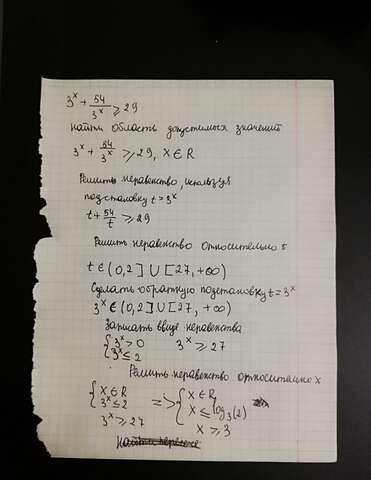 3^x + 54/3^x ⩾ 29
Найти область допустимых значений
3^x + 54/3^x ⩾ 29, x ∈ R
Решить неравенство, используя
подстановку t = 3^x
t + 54/t ⩾ 29
Решить неравенство относительно t
t ∈ (0, 2] ∪ [27, +∞)
Сделать обратную подстановку t = 3^x
3^x ∈ (0, 2] ∪ [27, +∞)
Записать ввиде неравенства
{3^x > 0 3^x ⩾ 27
{3^x ≤ 2
Решить неравенство относительно x
{x ∈ R => {x ∈ R
{3^x ≤ 2 {x ≤ log_3(2)
3^x ⩾ 27 x ⩾ 3